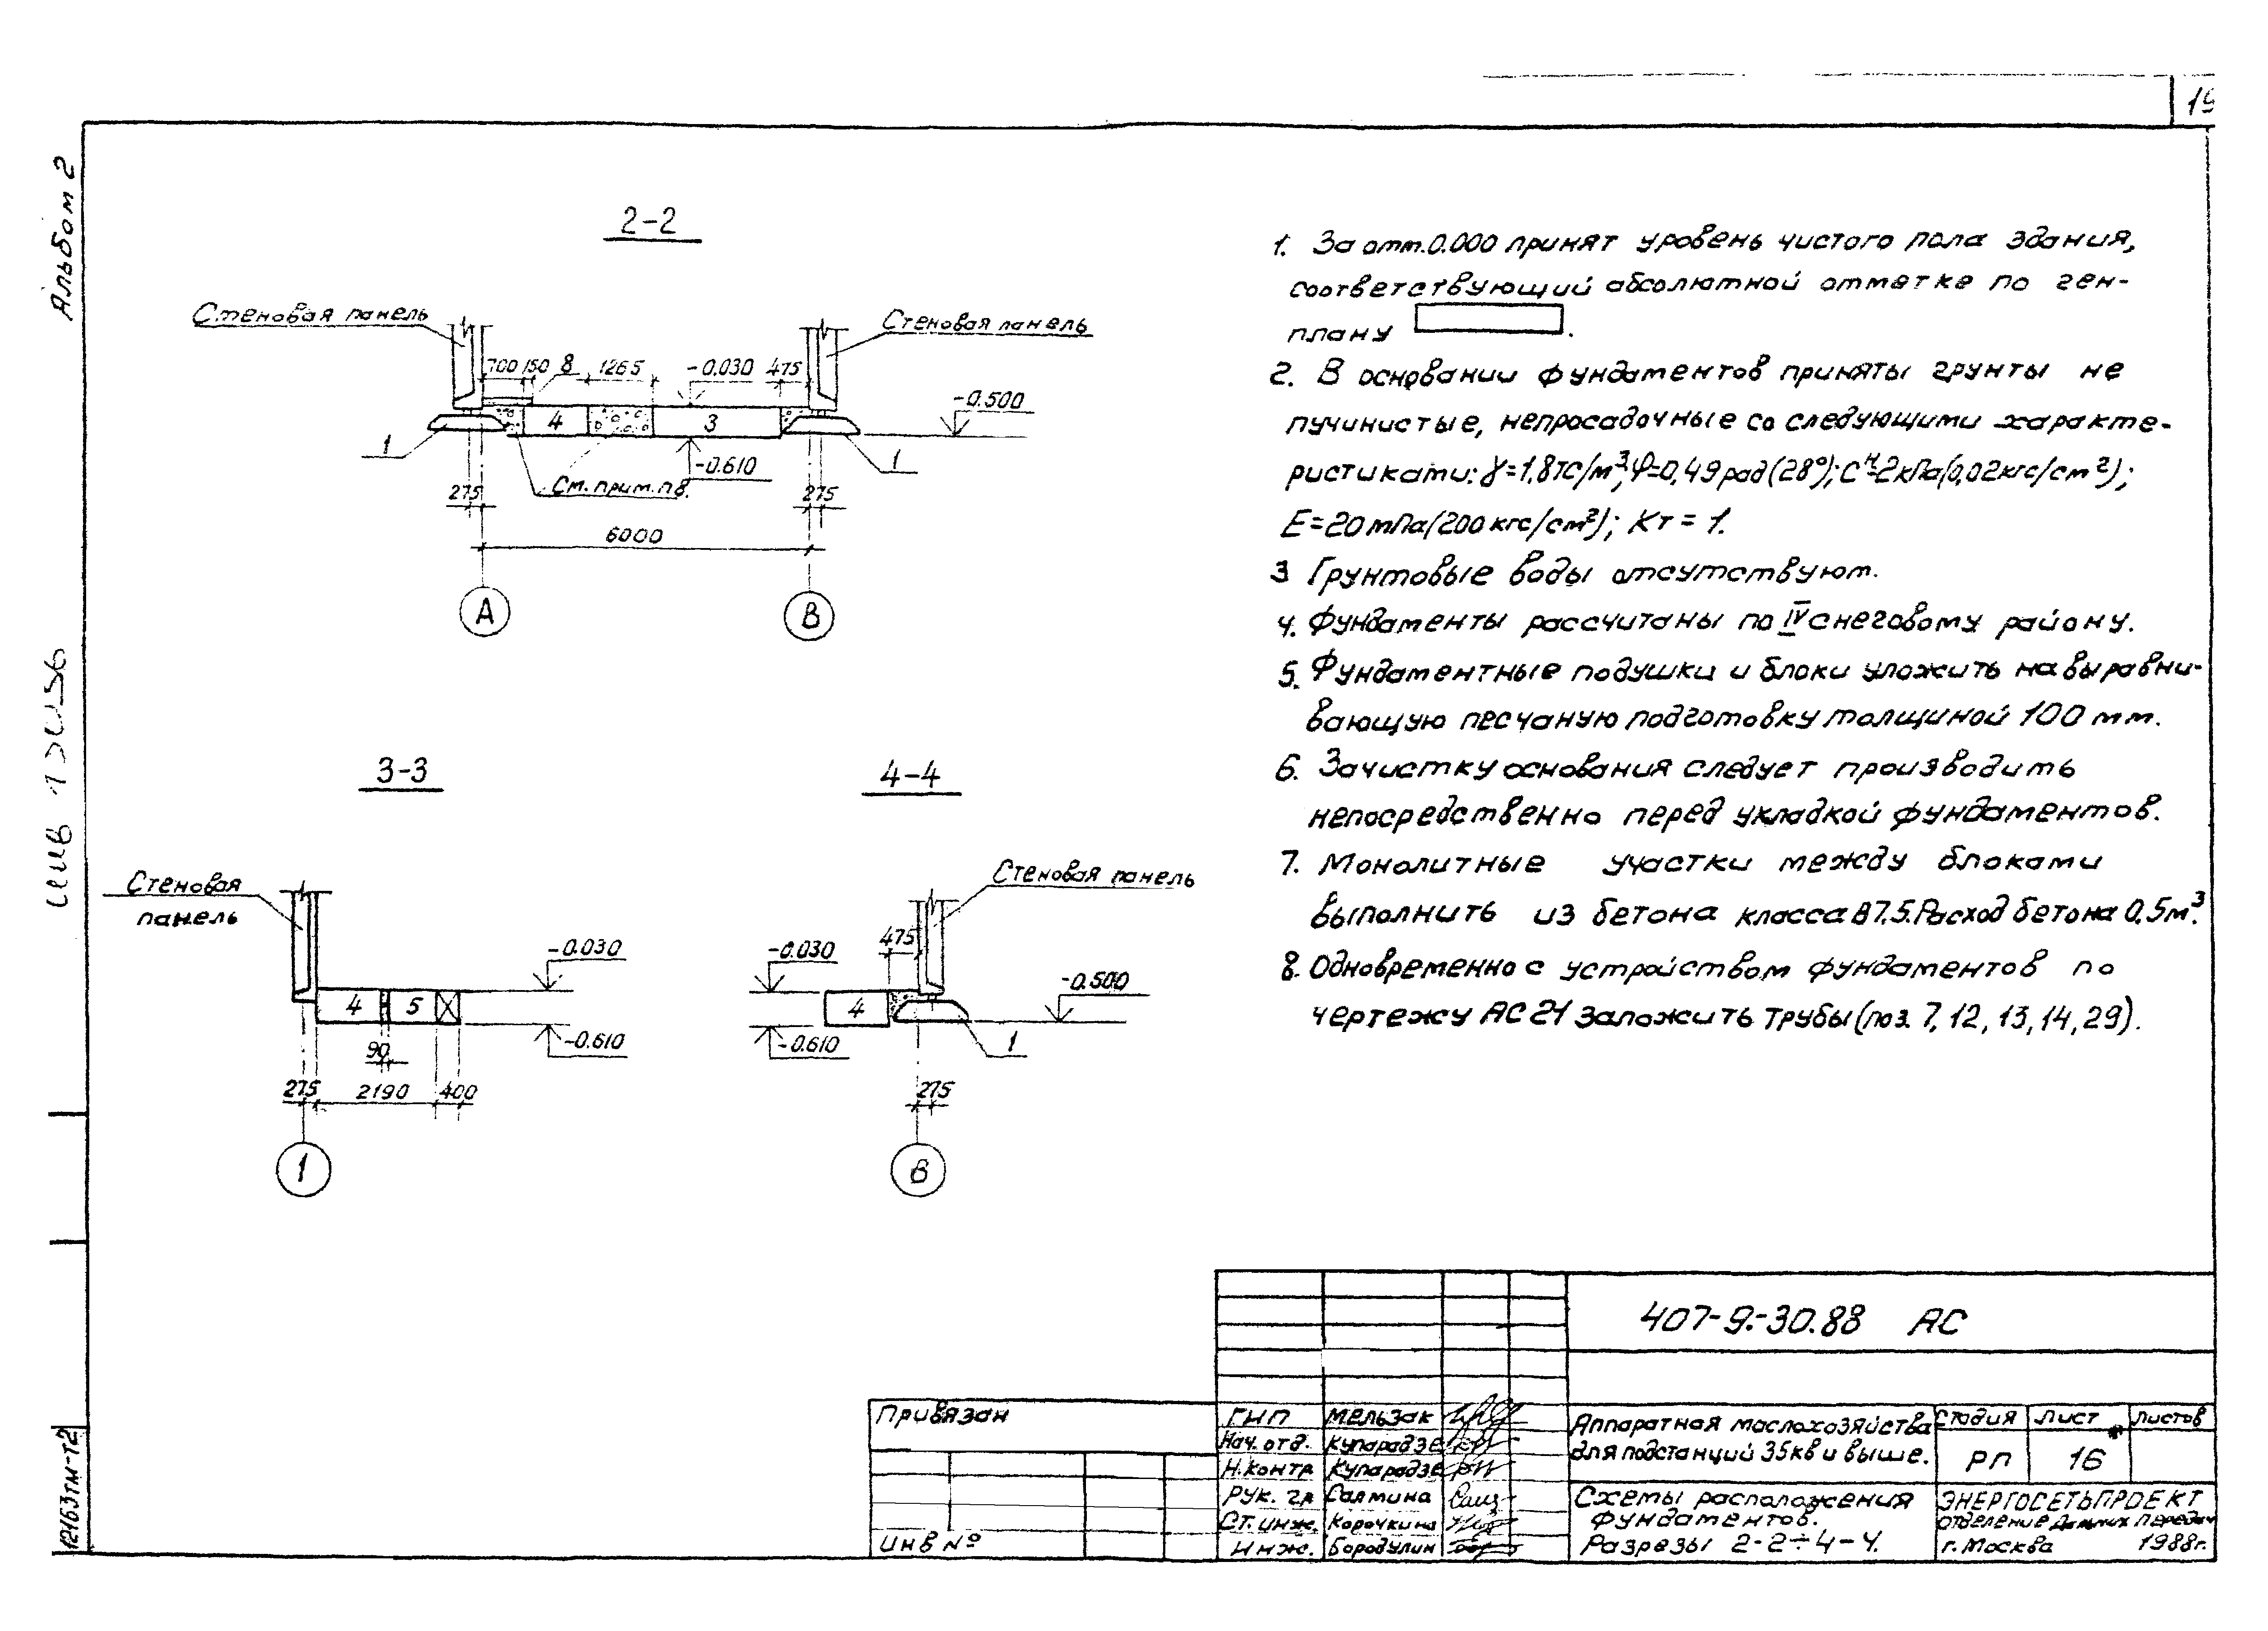 19
Альбом 2
2-2
Стеновая панель
Стеновая панель
700 150 8 1265 -0.030 475
-0.500
4 3
1 1
-0.610
См. прим. п 8.
275 275
6000
А В
3-3
Стеновая
панель
-0.030
4 5
-0.610
90
275 2190 400
1
4-4
Стеновая панель
475
-0.030
-0.500
4
-0.610
1
275
В
1. За отм. 0.000 принят уровень чистого пола здания,
соответствующий абсолютной отметке по ген-
плану .
2. В основании фундаментов приняты грунты не
пучинистые, непросадочные со следующими характе-
ристиками: γ=1,8тс/м³; φ=0,49 рад (28°); Cᴴ=2кПа (0,02кгс/см²);
E=20 мПа (200 кгс/см²); Кт = 1.
3 Грунтовые воды отсутствуют.
4. Фундаменты рассчитаны по IV снеговому району.
5. Фундаментные подушки и блоки уложить на выравни-
вающую песчаную подготовку толщиной 100 мм.
6. Зачистку основания следует производить
непосредственно перед укладкой фундаментов.
7. Монолитные участки между блоками
выполнить из бетона класса В7.5. Расход бетона 0,5м³.
8. Одновременно с устройством фундаментов по
чертежу АС 21 заложить трубы (поз. 7, 12, 13, 14, 29).
407-9-30.88 АС
Привязан
Инв №
ГИП Мельзак
Нач. отд. Купарадзе
Н. контр Купарадзе
Рук. гр Салмина
Ст. инж. Корочкина
Инж. Бородулин
Аппаратная маслохозяйства
для подстанций 35кв и выше.
Стадия Лист Листов
РП 16
Схемы расположения
фундаментов.
Разрезы 2-2÷4-4.
ЭНЕРГОСЕТЬПРОЕКТ
отделение дальних передач
г. Москва 1988г.
12163тм-т2